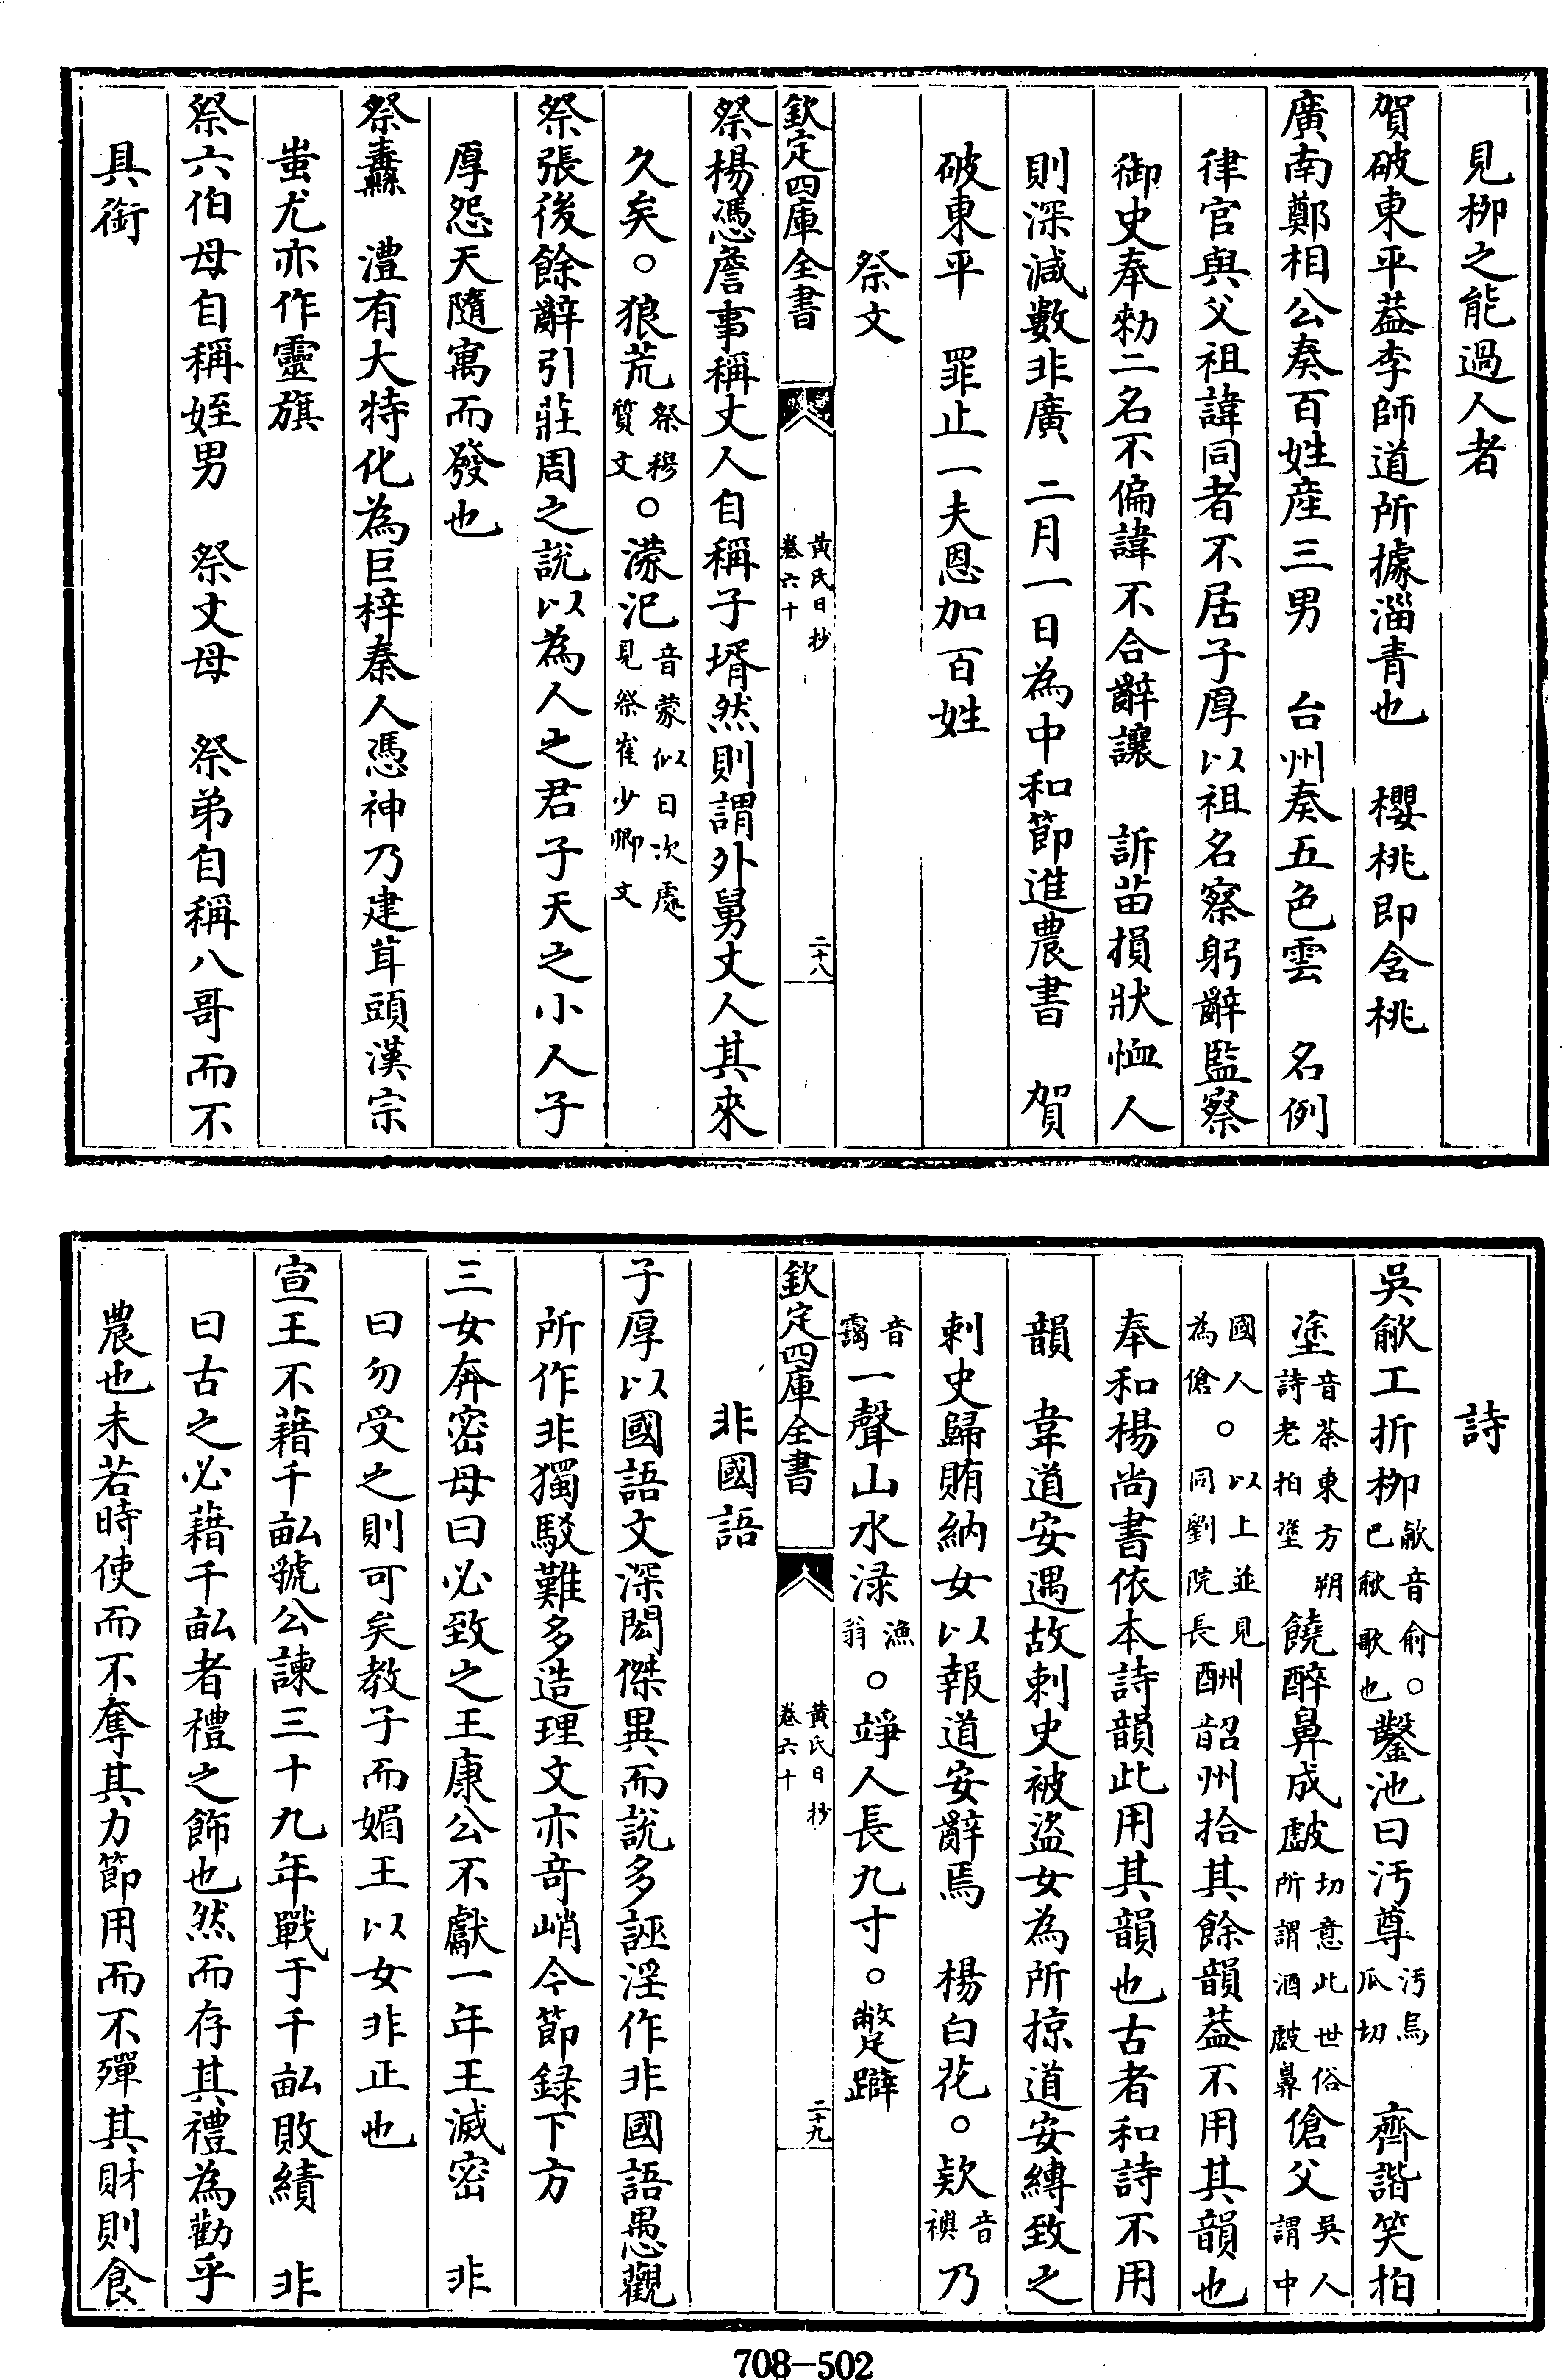 見栁之能過人者
賀破東平葢李師道所據淄青也　櫻桃即含桃
廣南鄭相公奏百姓産三男　台州奏五色雲　名例
律官與父祖諱同者不居子厚以祖名察躬辭監察
御史奉勑二名不偏諱不合辭讓　訴苗損狀恤人
則深減數非廣　二月一日為中和節進農書　賀
破東平　罪止一夫恩加百姓
祭文
欽定四庫全書
黄氏日抄
卷六十
二十八
祭楊憑詹事稱丈人自稱子壻然則謂外舅丈人其來
久矣。狼荒祭穆質文。濛汜音蒙似日次處見祭崔少卿文
祭張後餘辭引莊周之説以為人之君子天之小人子
厚怨天隨寓而發也
祭纛　澧有大特化為巨梓秦人憑神乃建茸頭漢宗
蚩尤亦作靈旗
祭六伯母自稱姪男　祭丈母　祭弟自稱八哥而不
具銜
詩
吳歈工折栁歈音俞。巳歈歌也鑿池曰汚尊汚烏瓜切　齊諧笑拍
塗音茶東方朔詩老拍塗饒醉鼻成皻切意此世俗所謂酒皻鼻傖父吳人謂中
國人為傖。以上並見同劉院長酬韶州拾其餘韻葢不用其韻也
奉和楊尚書依本詩韻此用其韻也古者和詩不用
韻　韋道安遇故刺史被盜女為所掠道安縳致之
刺史歸賄納女以報道安辭焉　楊白花。欵音襖乃
音靄一聲山水渌漁翁。竫人長九寸。蹩躃
欽定四庫全書
黄氏日抄
卷六十
二十九
非國語
子厚以國語文深閎傑異而説多誣淫作非國語愚觀
所作非獨駁難多造理文亦竒峭今節録下方
三女奔密母曰必致之王康公不獻一年王滅密　非
曰勿受之則可矣教子而媚王以女非正也
宣王不藉千畝虢公諫三十九年戰于千畝敗績　非
曰古之必藉千畝者禮之飾也然而存其禮為勸乎
農也未若時使而不奪其力節用而不殫其財則食
708—502